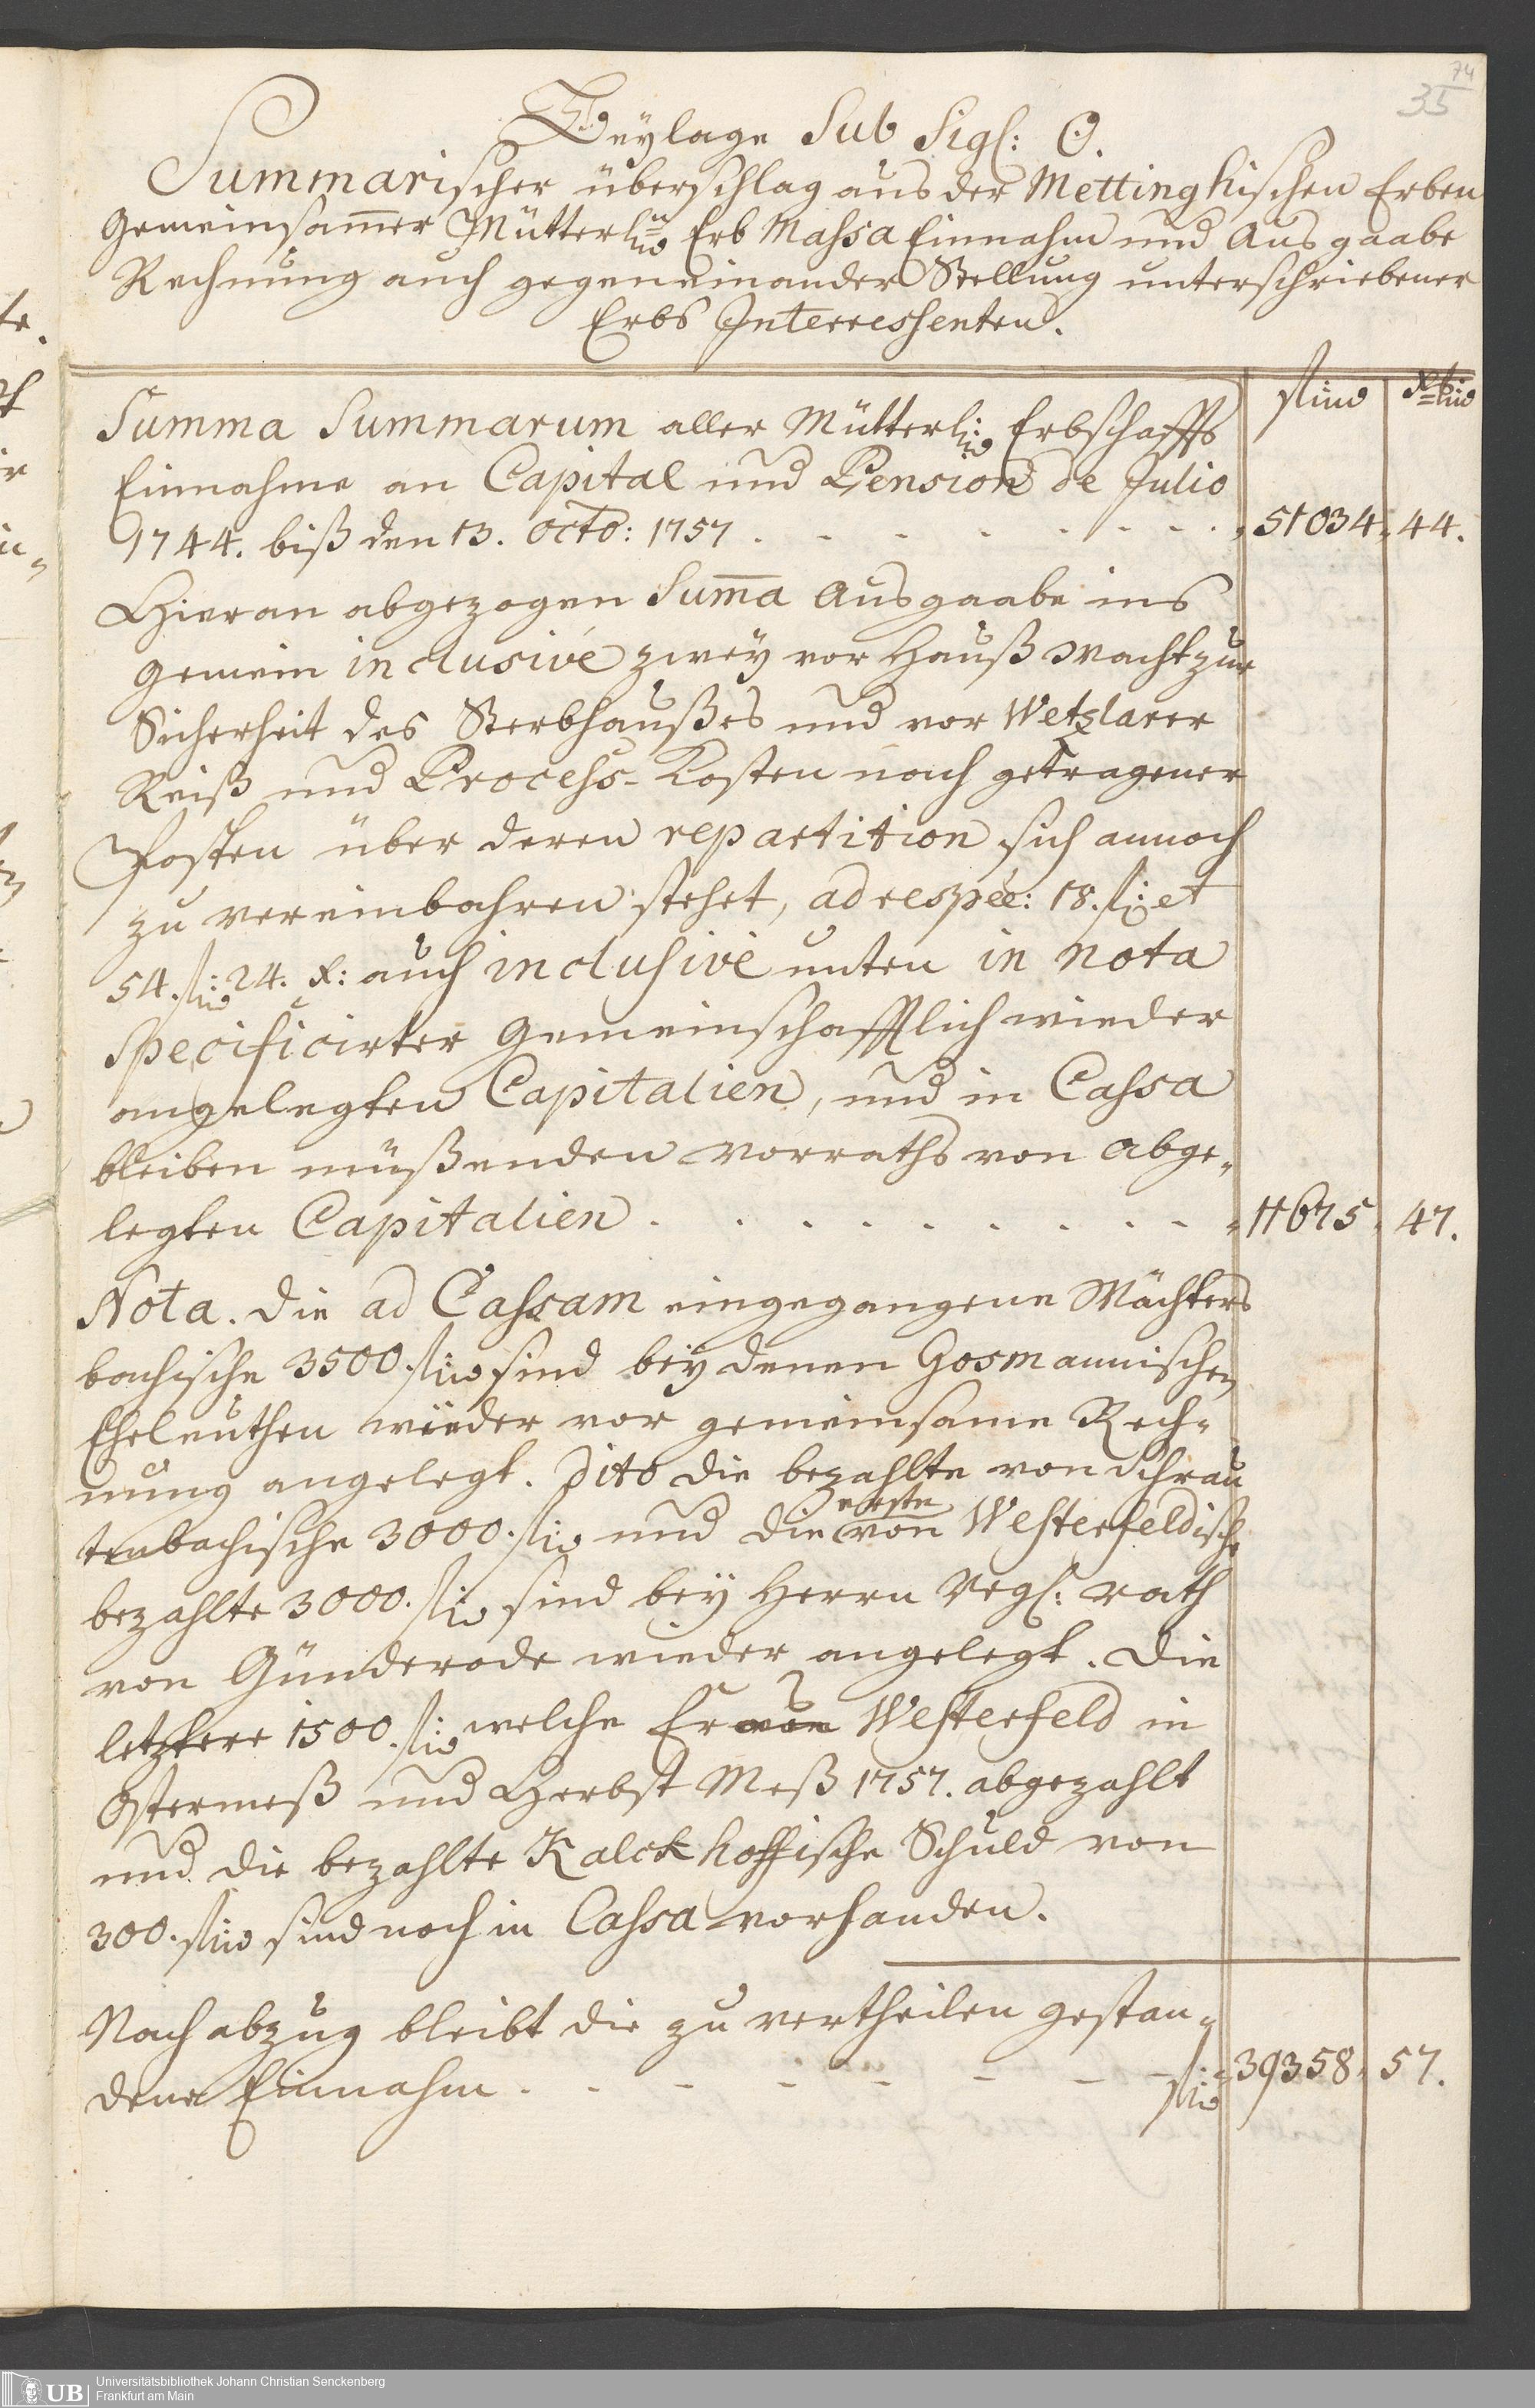 74
35
Beylage Sub Sigl: O.
Summarischer überschlag aus der Mettinghischen Erben
Gemeinsam̅er Mütterl: Erb Massa Einnahm und Ausgaabe
Rechnung auch gegeneinander Stellung unterschriebener
Erbs Interressenten.
fl. xr.
Summa Summarum aller Mütterl: Erbschaffts
Einnahme an Capital und Pension de Julio
1744. biß den 13. octo: 1757 . . . . . . . 51034. 44.
Hieran abgezogen Sum̅a Ausgaabe ins
gemein inclusivè zwey vor Hauß Wacht zur
Sicherheit des Sterbhaußes und vor Wetzlarer
Reiß und Process-Kosten noch getragener
Posten über deren repartition sich annoch
zu vereinbahren stehet, ad respée: 18. fl: et
54. fl: 24. x: auch inclusivè unten in nota
specificirter Gemeinschafftlich wieder
angelegten Capitalien, und in Cassa
bleiben müßenden Vorraths von abge-
legten Capitalien . . . . . . . . . 11675. 47.
Nota. Die ad Cassam eingegangene Wächters
bachische 3500. fl: sind bey denen Gosmannischen
Eheleuthen wieder vor gemeinsame Rech-
nung angelegt. Dito die bezahlte von Schrau
tenbachische 3000. fl: und die erste von Westerfeldische
bezahlte 3000. fl: sind bey Herrn Regl: rath
von Günderode wieder angelegt. Die
letztere 1500. fl: welche Er von Westerfeld in
Ostermeß und Herbst Meß 1757. abgezahlt
und die bezahlte Kalckhoffische Schuld von
300. fl: sind noch in Cassa vorhanden.
Nach abzug bleibt die zu vertheilen gestan-
dene Einnahm . . - - - - - - fl: 39358. 57.
UB
Universitätsbibliothek Johann Christian Senckenberg
Frankfurt am Main